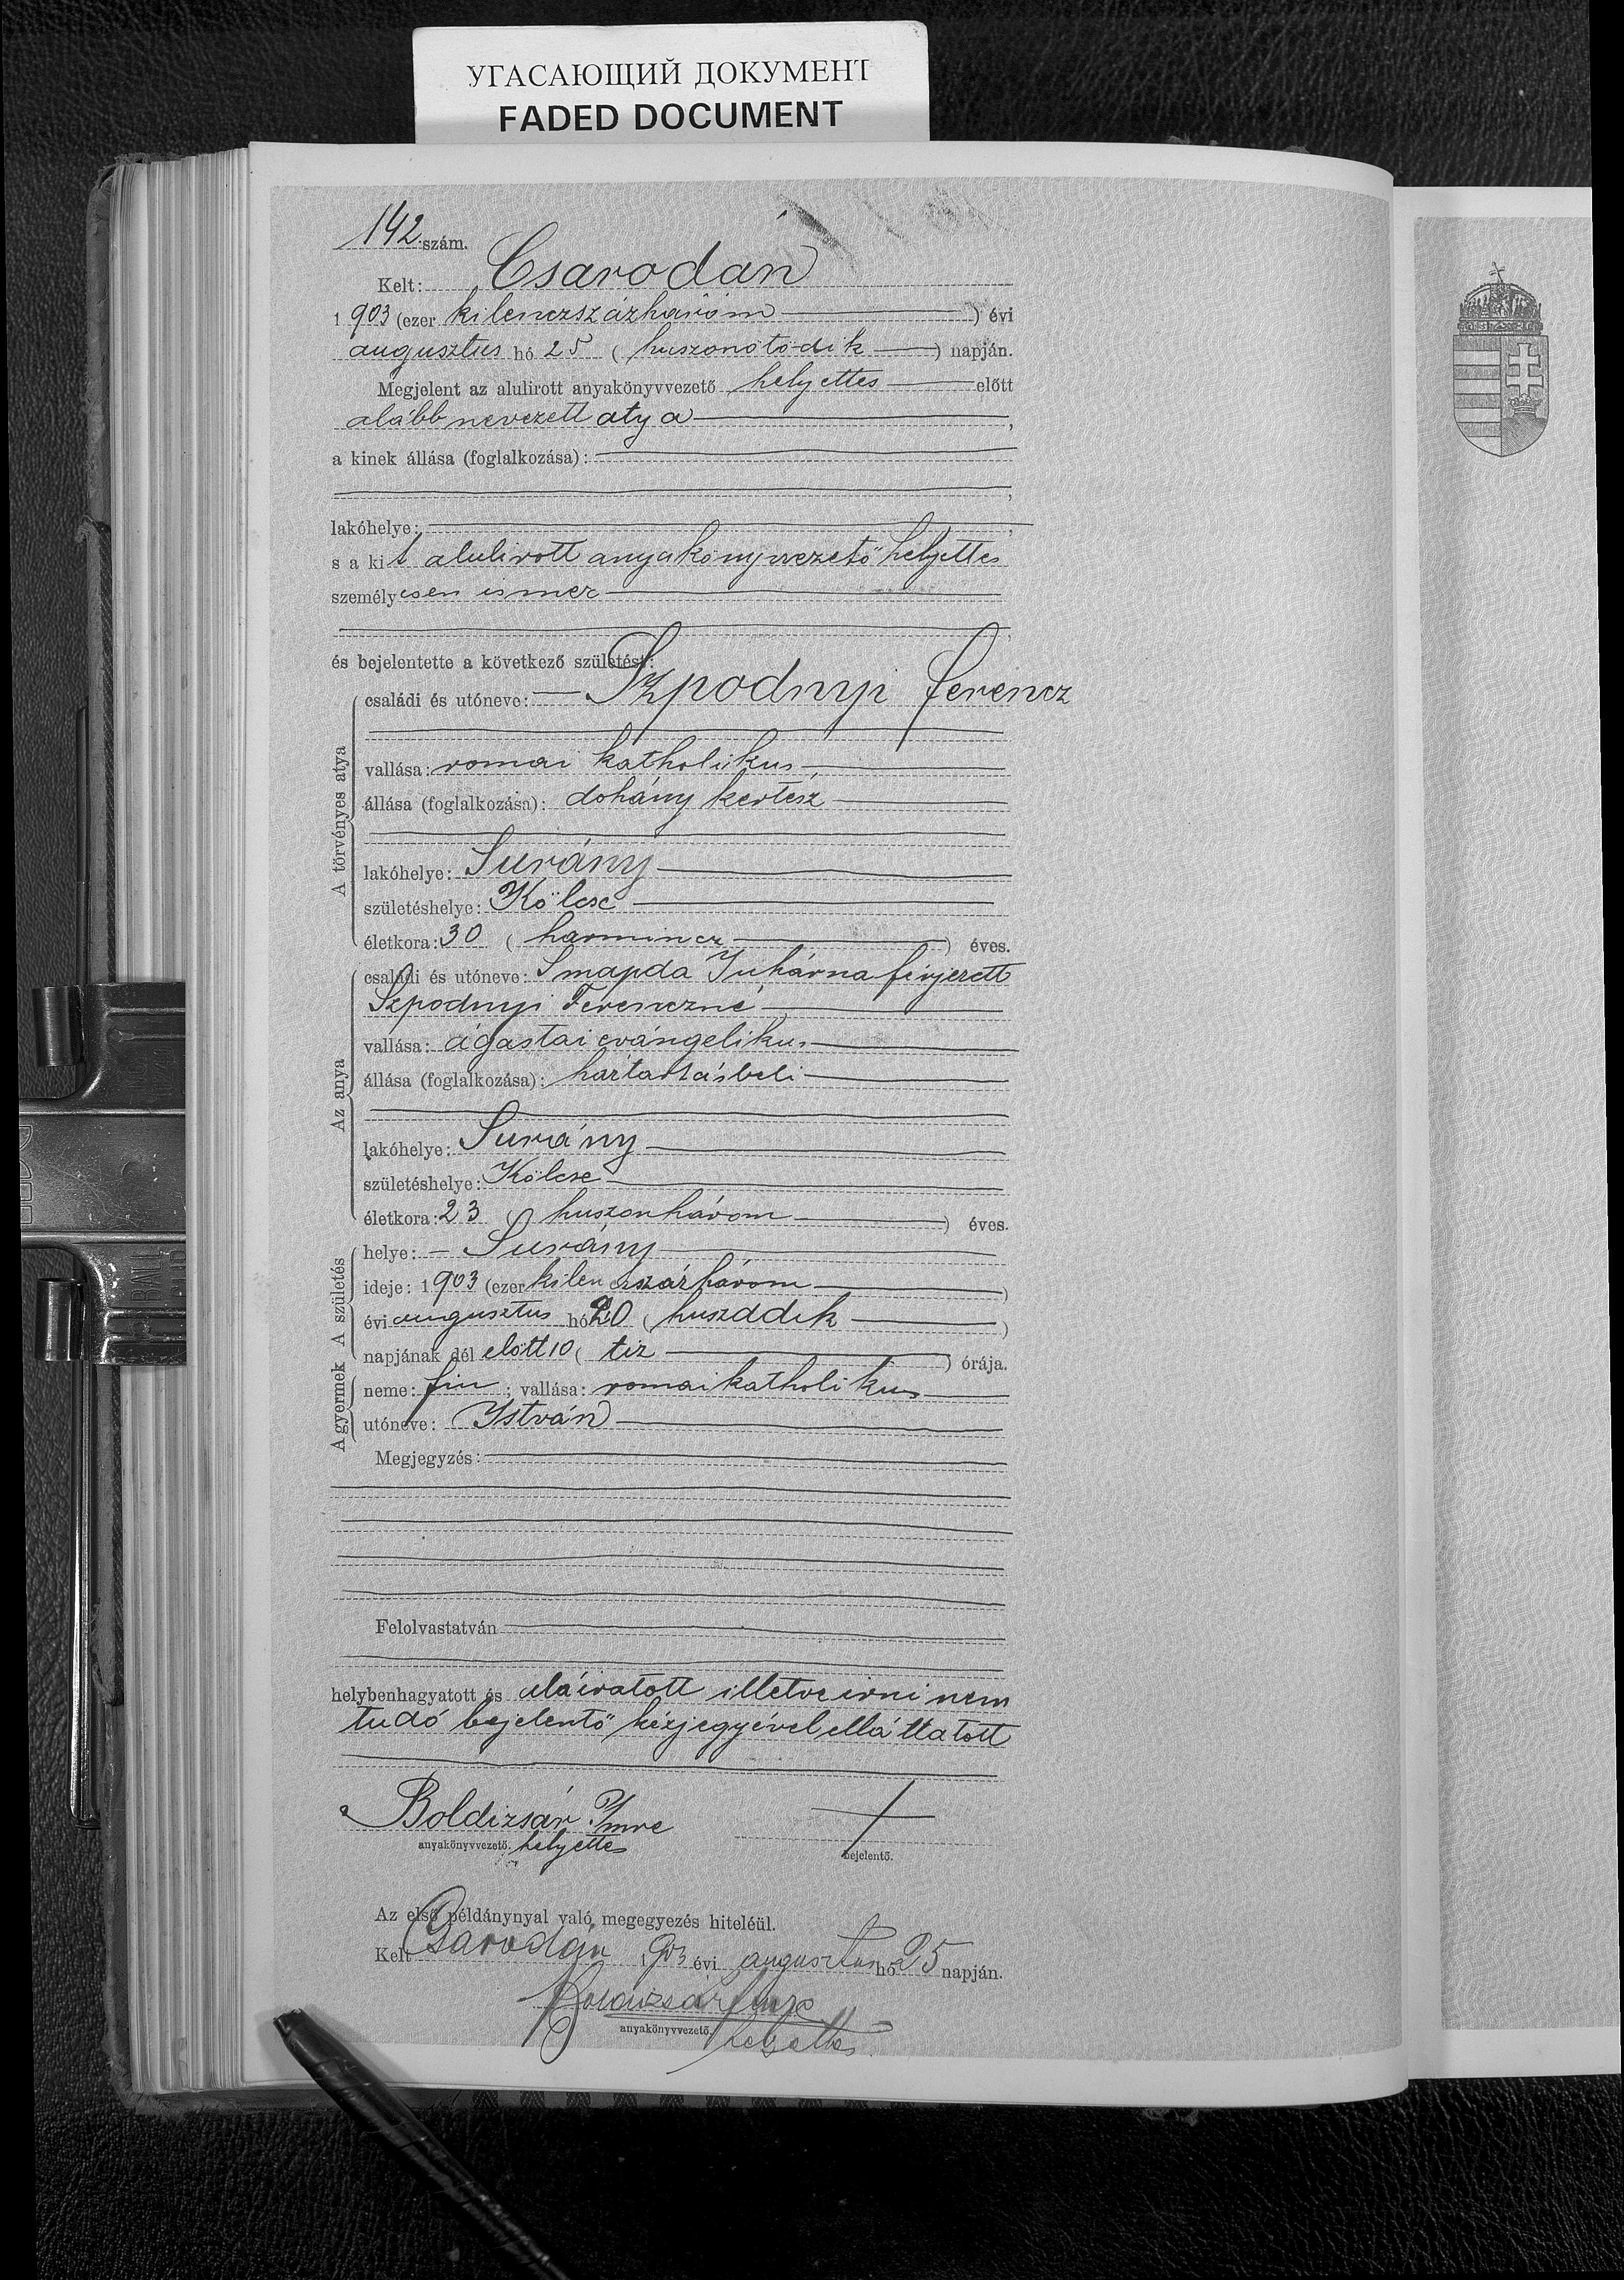 УГАСАЮЩИЙ ДОКУМЕНТ
FADED DOCUMENT
142. szám.
Kelt: Csarodán
1903 (ezer kilenczszázhárom) évi
augusztus hó 25 (huszonötödik) napján.
Megjelent az alulirott anyakönyvvezető helyettes előtt
alább nevezett atya,
a kinek állása (foglalkozása):
,
lakóhelye:,
s a kit alulirott anyakönyvvezető helyettes
személyesen ismer
,
és bejelentette a következő születést:
A törvényes atya
családi és utóneve: Szpodnyi Ferencz
vallása: romai katholikus
állása (foglalkozása): dohány kertész
lakóhelye: Surány
születéshelye: Kölcse
életkora: 30 (harmincz) éves.
Az anya
családi és utóneve: Smajda Juhánna férjezett
Szpodnyi Ferenczné
vallása: ágastai evángelikus
állása (foglalkozása): háztartásbeli
lakóhelye: Surány
születéshelye: Kölcse
életkora: 23 (huszonhárom) éves.
A születés
helye: Surány
ideje: 1903 (ezer kilenczszázhárom)
évi augusztus hó 20 (huszadik)
napjának dél előtt 10 (tiz) órája.
A gyermek
neme: fiu; vallása: romai katholikus
utóneve: István
Megjegyzés:
Felolvastatván
helybenhagyatott és aláiratott illetve irni nem
tudó bejelentő kézjegyével elláttatott
Boldizsár Imre
anyakönyvvezető. helyettes
bejelentő.
Az első példánynyal való megegyezés hiteléül.
Kelt Csarodán 1903 évi augusztus hó 25 napján.
Boldizsár Imre
anyakönyvvezető. helyettes